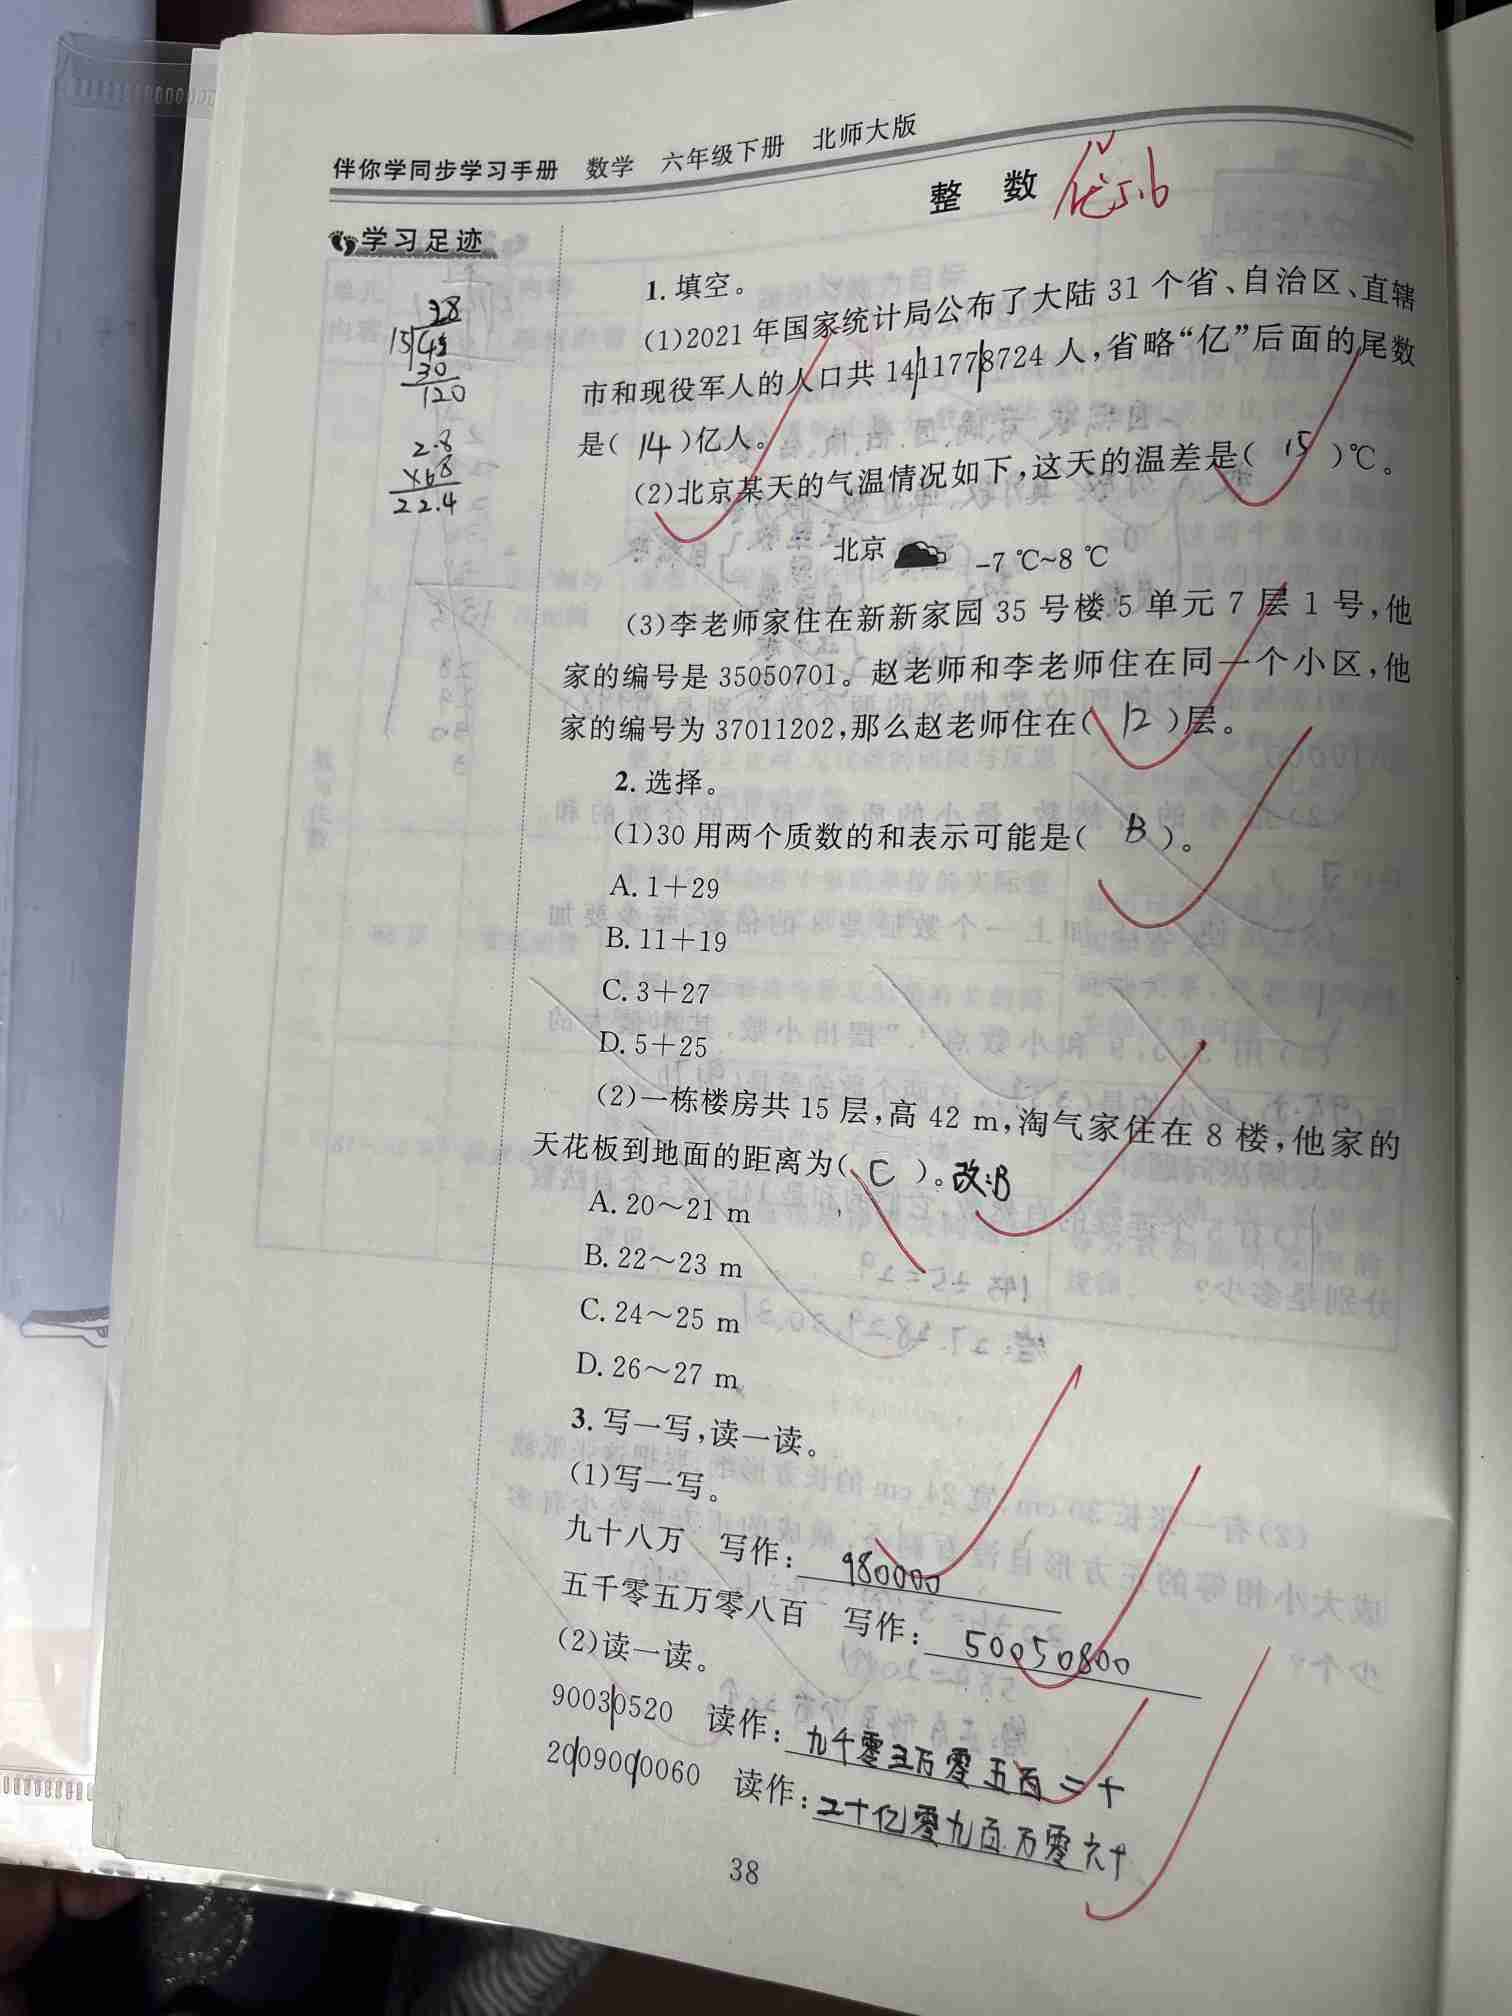 伴你学同步学习手册 数学 六年级下册 北师大版
整 数
优5.6
学习足迹
2.8
15
42
30
120
2.8
×8
22.4
1. 填空。
(1)2021年国家统计局公布了大陆31个省、自治区、直辖
市和现役军人的人口共1411778724人,省略“亿”后面的尾数
是( 14 )亿人。
(2)北京某天的气温情况如下,这天的温差是( 15 )℃。
北京 -7 ℃~8 ℃
(3)李老师家住在新新家园35号楼5单元7层1号,他
家的编号是35050701。赵老师和李老师住在同一个小区,他
家的编号为37011202,那么赵老师住在( 12 )层。
2. 选择。
(1)30用两个质数的和表示可能是( B )。
A. 1+29
B. 11+19
C. 3+27
D. 5+25
(2)一栋楼房共15层,高42 m,淘气家住在8楼,他家的
天花板到地面的距离为( C )。改:B
A. 20～21 m
B. 22～23 m
C. 24～25 m
D. 26～27 m
3. 写一写,读一读。
(1)写一写。
九十八万 写作: 980000
五千零五万零八百 写作: 50050800
(2)读一读。
90030520 读作: 九千零三万零五百二十
2009000060 读作: 二十亿零九百万零六十
38